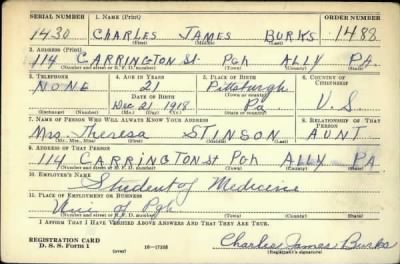 SERIAL NUMBER 1. NAME (Print) ORDER NUMBER
1430 CHARLES JAMES BURKS 1488
(First) (Middle) (Last)
2. ADDRESS (Print)
114 CARRINGTON St. Pgh ALLY PA.
(Number and street or R. F. D. number) (Town) (County) (State)
3. TELEPHONE 4. AGE IN YEARS 5. PLACE OF BIRTH 6. COUNTRY OF CITIZENSHIP
NONE 21 Pittsburgh
DATE OF BIRTH (Town or county)
Dec 21, 1918 Pa U.S.
(Exchange) (Number) (Mo.) (Day) (Yr.) (State or country)
7. NAME OF PERSON WHO WILL ALWAYS KNOW YOUR ADDRESS 8. RELATIONSHIP OF THAT PERSON
Mrs. Theresa STINSON AUNT
(Mr., Mrs., Miss) (First) (Middle) (Last)
9. ADDRESS OF THAT PERSON
114 CARRINGTON St Pgh ALLY PA
(Number and street or R. F. D. number) (Town) (County) (State)
10. EMPLOYER'S NAME
Student of Medicine
11. PLACE OF EMPLOYMENT OR BUSINESS
Uni of Pgh
(Number and street or R. F. D. number) (Town) (County) (State)
I AFFIRM THAT I HAVE VERIFIED ABOVE ANSWERS AND THAT THEY ARE TRUE.
REGISTRATION CARD
D. S. S. Form 1 (over) 16-17105 Charles James Burks
(Registrant's signature)